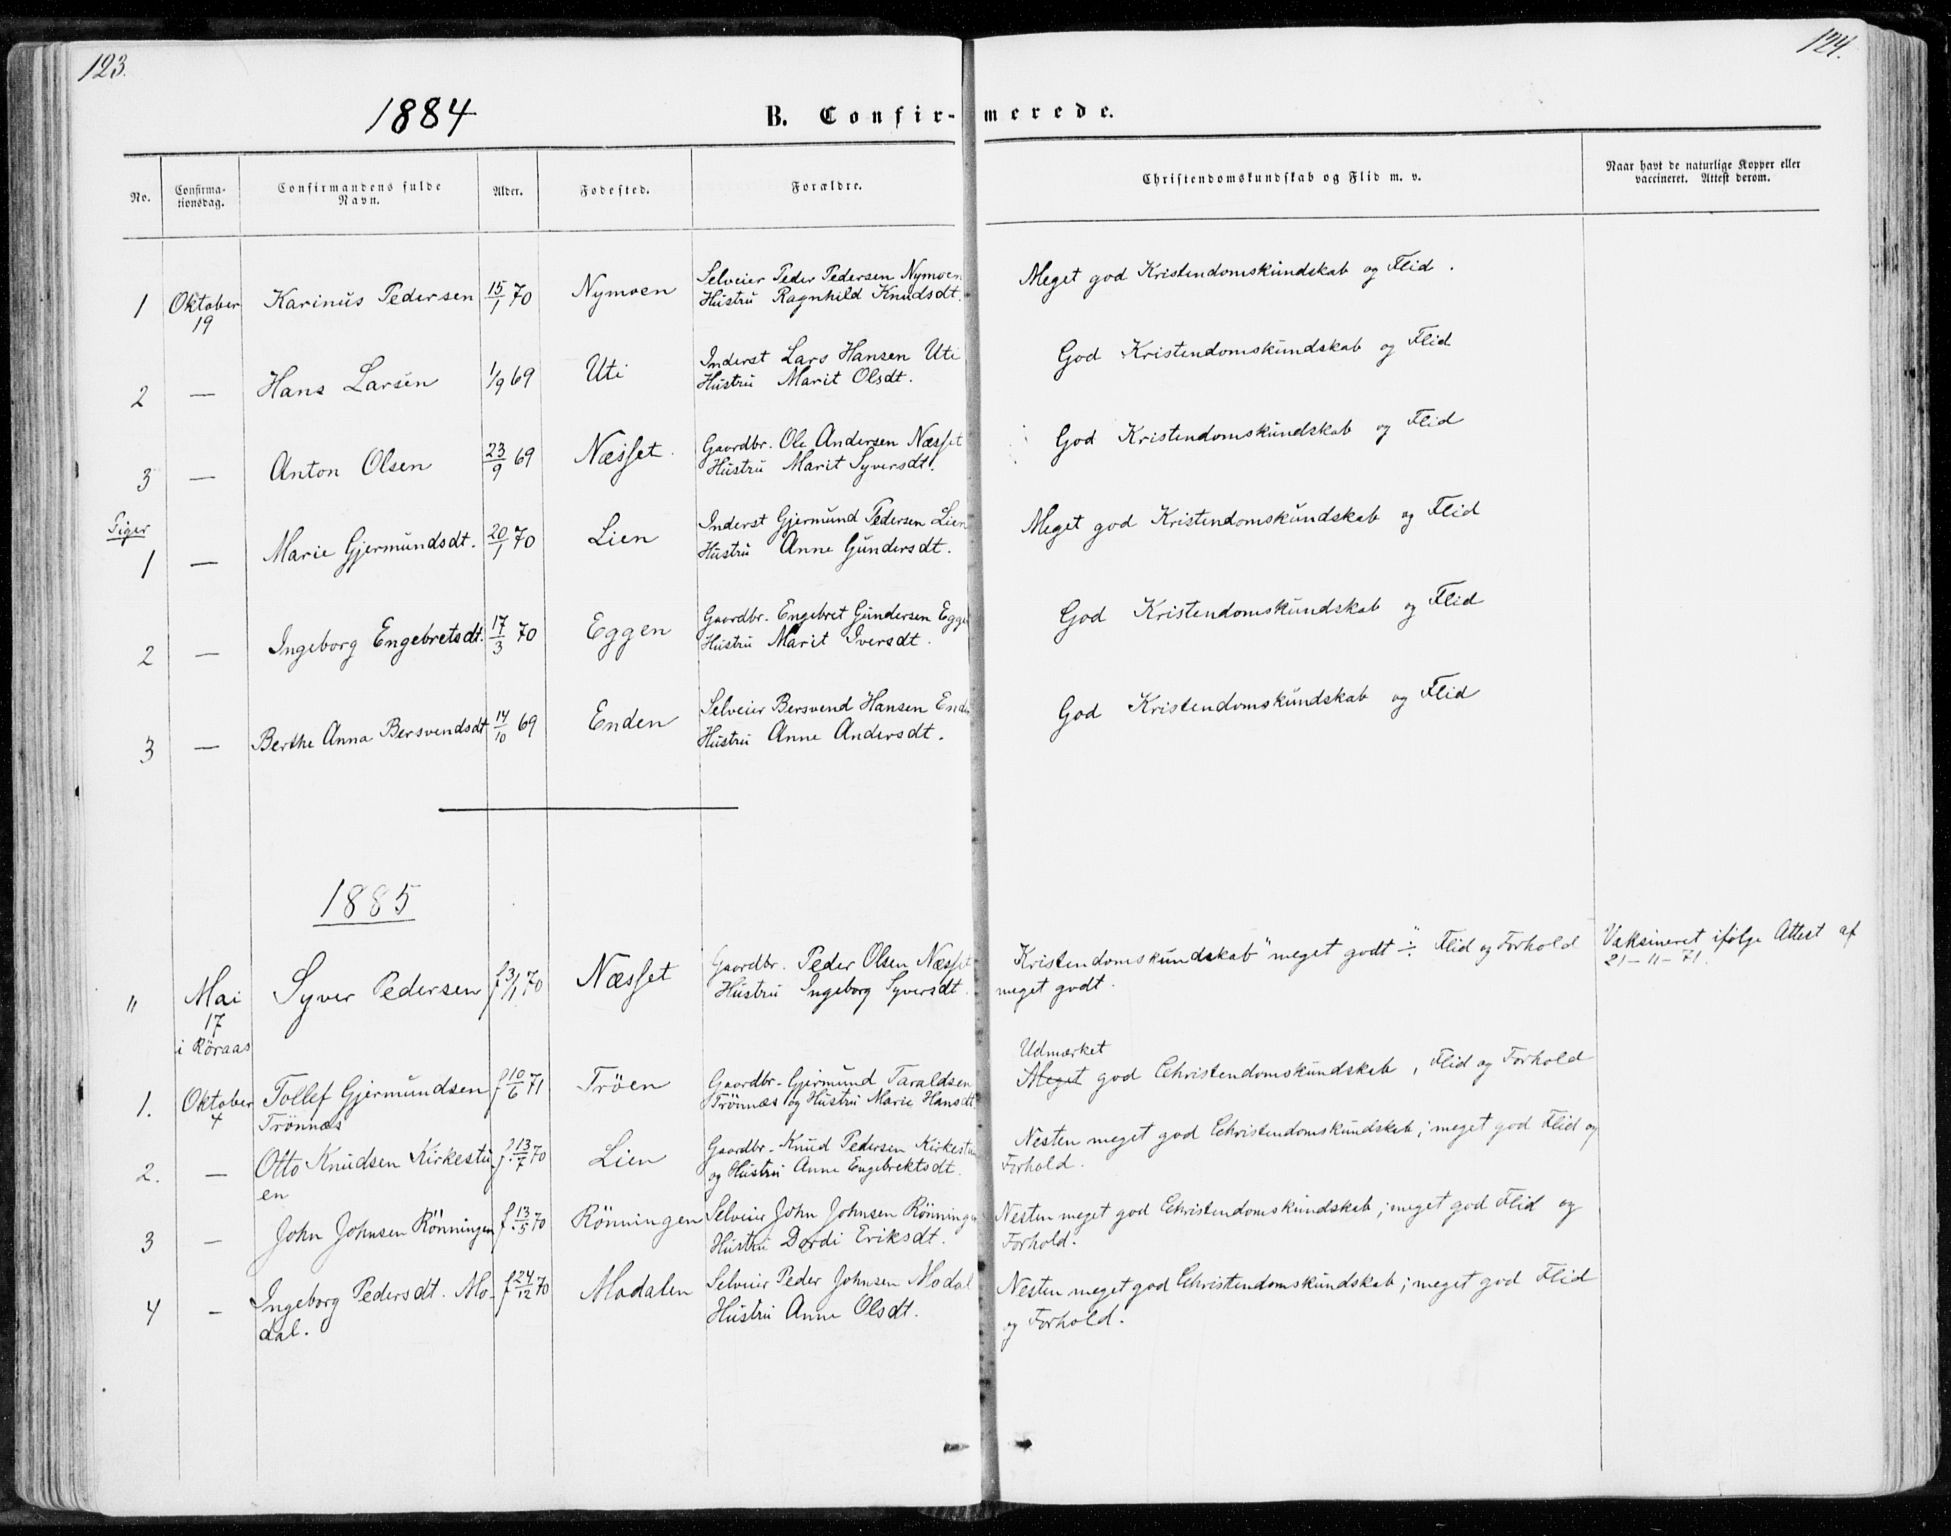 123.
124.
1884
B. Confir-merede.
No.
Confirma-
tionsdag.
Confirmandens fulde
Navn.
Alder.
Fødested.
Forældre.
Christendomskundskab og Flid m. v.
Naar havt de naturlige Kopper eller
vaccineret. Attest derom.
1 Oktober 19 Karinus Pedersen 15/1 70 Nymoen
Selveier Peder Pedersen Nymoen
Hustru Ragnhild Knudsdt.
Meget god Kristendomskundskab og Flid.
2 — Hans Larsen 1/9 69 Uti
Inderst Lars Hansen Uti
Hustru Marit Olsdt.
God Kristendomskundskab og Flid
3 — Anton Olsen 23/9 69 Næsset.
Gaardbr. Ole Andersen Næsset
Hustru Marit Syversdt.
God Kristendomskundskab og Flid
Piger
1 — Marie Gjermundsdt. 20/1 70 Lien
Inderst Gjermund Pedersen Lien
Hustru Anne Gundersdt.
Meget god Kristendomskundskab og Flid
2 — Ingeborg Engebretsdt. 17/3 70 Eggen
Gaardbr. Engebret Gundersen Egge
Hustru Marit Iversdt.
God Kristendomskundskab og Flid
3 — Berthe Anna Bersvendsdt 14/10 69 Enden
Selveier Bersvend Hansen Enden
Hustru Anne Andersdt.
God Kristendomskundskab og Flid
1885
" Mai 17 i Röraas Syver Pedersen f 3/1 70 Næsset
Gaardbr. Peder Olsen Næsset
Hustru Ingeborg Syversdt.
Kristendomskundskab "meget godt ÷" Flid og Forhold
meget godt.
Vaksineret ifølge Attest af
21-11-71.
1. Oktober 4 Tollef Gjermundsen
Trönnæs
f 10/6 71 Tröen
Gaardbr. Gjermund Taraldsen
Trönnæs og Hustru Marie Hansdt.
Udmærket
Meget god Christendomskundskab, Flid og Forhold
2. — Otto Knudsen Kirkestu
en
f. 13/7 70 Lien
Gaardbr. Knud Pedersen Kirkestuen
og Hustru Anne Engebrektsdt.
Nesten meget god Christendomskundskab; meget god Flid og
Forhold.
3 — John Johnsen Rönningen f. 13/5 70 Rönningen
Selveier John Johnsen Rönningen
Hustru Dordi Eriksdt.
Nesten meget god Christendomskundskab; meget god Flid og
Forhold.
4 — Ingeborg Pedersdt. Mo-
dal.
f 24/12 70 Modalen
Selveier Peder Johnsen Modal
Hustru Anne Olsdt.
Nesten meget god Christendomskundskab; meget god Flid
og Forhold.